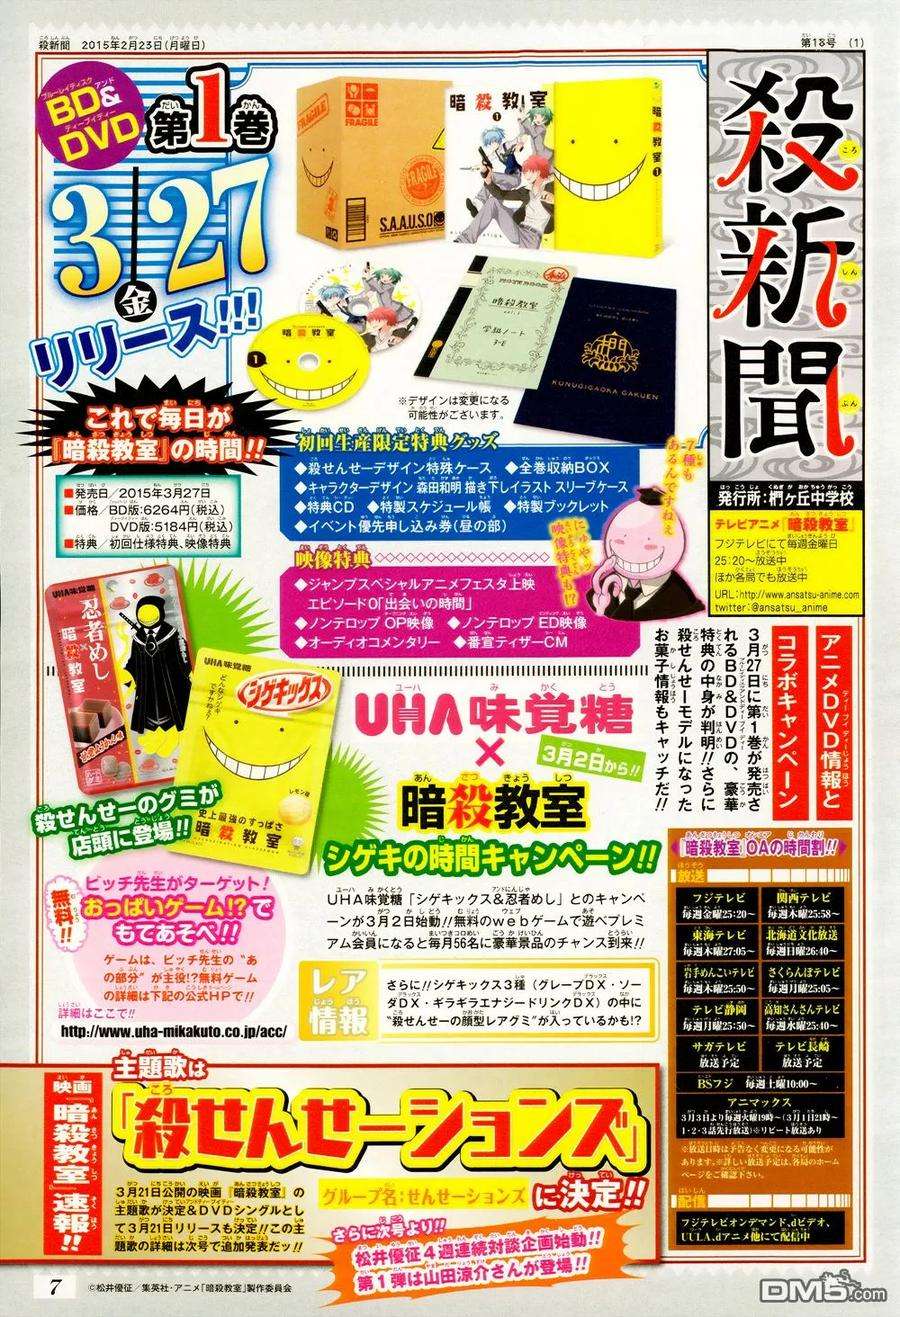 殺新聞 2015年2月23日(月曜日)
第18号 (1)
殺新聞
発行所:椚ヶ丘中学校
テレビアニメ『暗殺教室』
フジテレビにて毎週金曜日
25:20〜放送中
ほか各局でも放送中
URL:http://www.ansatsu-anime.com
twitter:@ansatsu_anime
BD&DVD
第1巻
3/27
金
リリース!!!
FRAGILE
S.A.A.U.S.O
暗殺教室
1
暗殺教室 1
暗殺教室
1
暗殺教室
学級ノート
3-E
KUNUGIGAOKA GAKUEN
※デザインは変更になる
可能性がございます。
これで毎日が
『暗殺教室』の時間!!
■発売日/2015年3月27日
■価格/BD版:6264円(税込)
DVD版:5184円(税込)
■特典/初回仕様特典、映像特典
初回生産限定特典グッズ
◆殺せんせーデザイン特殊ケース ◆全巻収納BOX
◆キャラクターデザイン 森田和明 描き下しイラスト スリーブケース
◆特典CD ◆特製スケジュール帳 ◆特製ブックレット
◆イベント優先申し込み券(昼の部)
あ…7種も
あるんですねぇ
にゅやッ
映像特典も!?
映像特典
◆ジャンプスペシャルアニメフェスタ上映
エピソード0「出会いの時間」
◆ノンテロップ OP映像 ◆ノンテロップ ED映像
◆オーディオコメンタリー ◆番宣ティザーCM
アニメDVD情報と
コラボキャンペーン
3月27日に第1巻が発売さ
れるBD&DVDの、豪華
特典の中身が判明!!さらに
殺せんせーモデルになった
お菓子情報もキャッチだ!!
UHA味覚糖
忍者めし
×
暗殺教室
UHA味覚糖
どんなシゲキックスですかねぇ?
シゲキックス
レモン味
史上最強のすっぱさ
暗殺教室
殺せんせーのグミが
店頭に登場!!
UHA味覚糖
×
3月2日から!!
暗殺教室
シゲキの時間キャンペーン!!
UHA味覚糖「シゲキックス&忍者めし」とのキャンペ
ーンが3月2日始動!!無料のwebゲームで遊べプレミ
アム会員になると毎月56名に豪華景品のチャンス到来!!
無料!!
ビッチ先生がターゲット!
おっぱいゲーム!?で
もてあそべ!!
ゲームは、ビッチ先生の"あ
の部分"が主役!?無料ゲーム
の詳細は下記の公式HPで!!
詳細はここで!!
http://www.uha-mikakuto.co.jp/acc/
レア
情報
さらに!!シゲキックス3種(グレープDX・ソー
ダDX・ギラギラエナジードリンクDX)の中に
"殺せんせーの顔型レアグミ"が入っているかも!?
『暗殺教室』OAの時間割!!
放送
フジテレビ
毎週金曜25:20〜
関西テレビ
毎週木曜25:58〜
東海テレビ
毎週木曜27:05〜
北海道文化放送
毎週日曜26:40〜
岩手めんこいテレビ
毎週木曜25:50〜
さくらんぼテレビ
毎週月曜25:05〜
テレビ静岡
毎週月曜25:50〜
高知さんさんテレビ
毎週水曜25:40〜
サガテレビ
放送予定
テレビ長崎
放送予定
BSフジ 毎週土曜10:00〜
アニマックス
3月3日より毎週火曜19時〜(3月1日21時〜
1・2・3話先行放送)※リピート放送あり
※放送日時は予告なく変更になる可能性が
あります。※詳しい放送予定は、各局のホーム
ページをご確認下さい。
配信
フジテレビオンデマンド、dビデオ、
UULA、dアニメ他にて配信中
映画『暗殺教室』速報!!
主題歌は
「殺せんせーションズ」
に決定!!
グループ名:せんせーションズ
3月21日公開の映画『暗殺教室』の
主題歌が決定&DVDシングルとし
て3月21日リリースも決定!!この主
題歌の詳細は次号で追加発表だッ!!
さらに次号より!!
松井優征4週連続対談企画始動!!
第1弾は山田涼介さんが登場!!
7
©松井優征/集英社・アニメ「暗殺教室」製作委員会
DM5.com